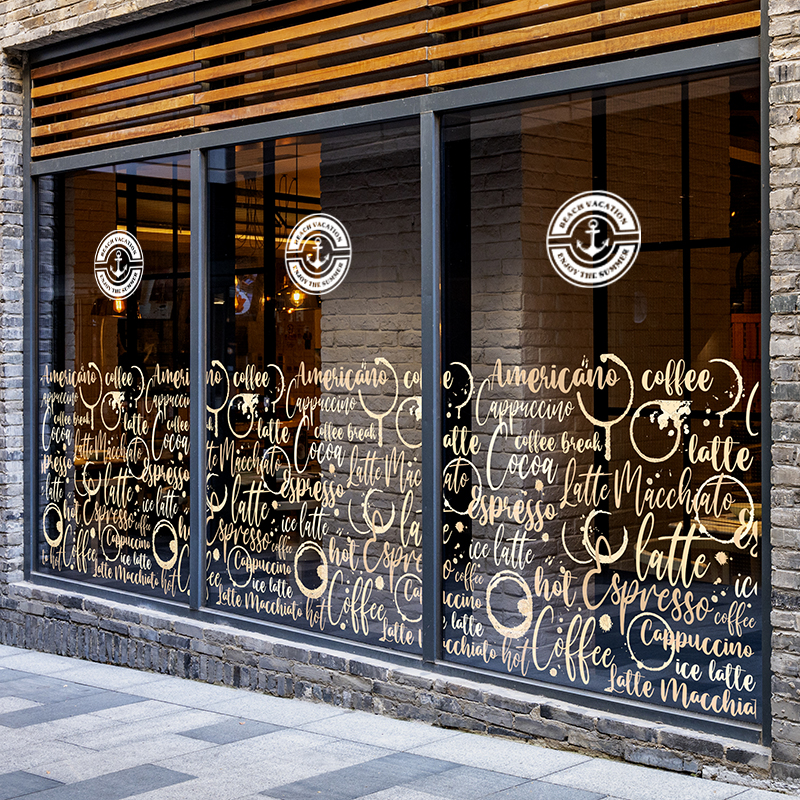 BEACH VACATION
ENJOY THE SUMMER
BEACH VACATION
ENJOY THE SUMMER
BEACH VACATION
ENJOY THE SUMMER
Americano coffee Ameri
appuccino Cappuccino
coffee break latte
Cocoa Cocoa
Latte Macchiato
espresso espresso
latte
ice latte
hot Espresso coffee
Coffee Cappuccino
ice latte
Latte Macchiato hot
no coffee Americano co
Cappuccino
latte coffee break
Cocoa
te Macchiato Latte Mac
espresso
latte la
ice latte
Espresso coffee hot Espre
Cappuccino
ice latte Coffee
Latte Macchiato hot Latte
Americano coffee
Cappuccino
latte coffee break latte
Cocoa
Latte Macchiato
espresso es
latte
ice latte
coffee hot Espresso ice
uccino coffee
e latte Coffee Cappuccino
ice latte
macchiato hot Latte Macchia